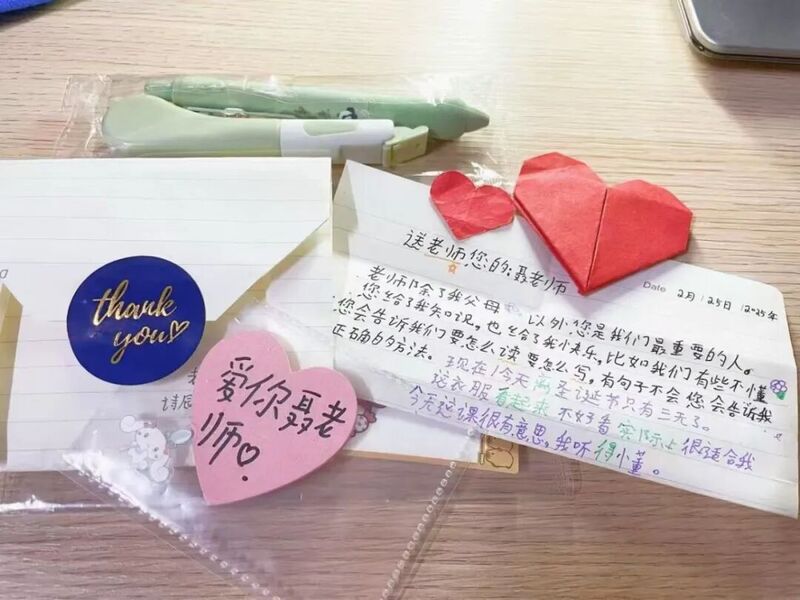 thank
you
爱你聂老
师
送老师您的:聂老师
Date 2月25日 2025年
老师除了我父母 以外您是我们最重要的人。
您给了我知识,也给了我快乐,比如我们有些不懂
您会告诉我们要怎么读要怎么写,有句子不会您会告诉我
正确的方法。现在今天 圣诞书只有三元了。
这衣服看起来不好看实际上很适合我
今天这课很有意思,我听得懂。
诗辰